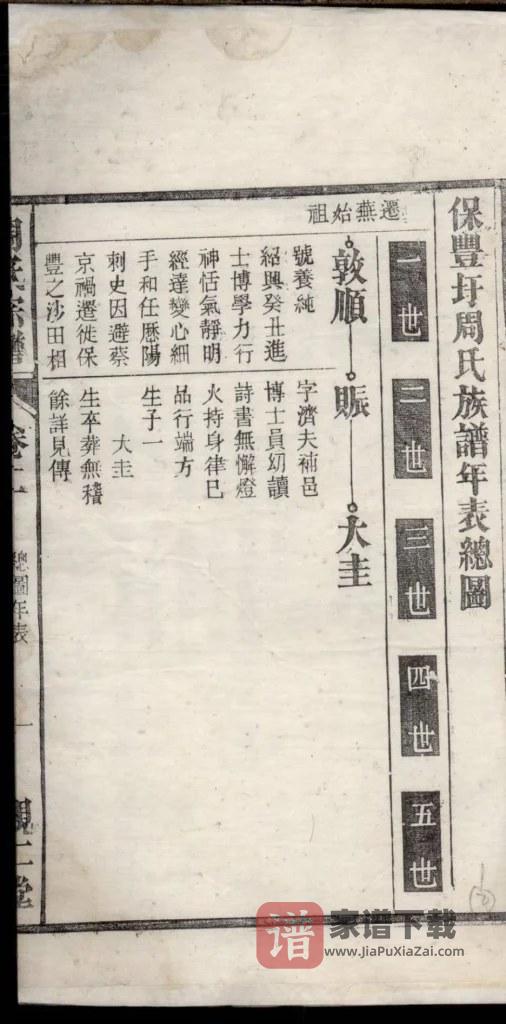 保豐圩周氏族譜年表總圖
一世
二世
三世
四世
五世
遷蕪始祖
敦順
賑
大圭
號養純
紹興癸丑進
士博學力行
神恬氣靜明
經達變心細
手和任歷陽
刺史因避蔡
京禍遷徙保
豐之沙田相
字濟夫補邑
博士員幼讀
詩書無懈燈
火持身律已
品行端方
生子一
大圭
生卒葬無稽
餘詳見傳
周氏宗譜
卷十一
總圖年表
一
家谱下载
www.JiaPuXiaZai.com
谱